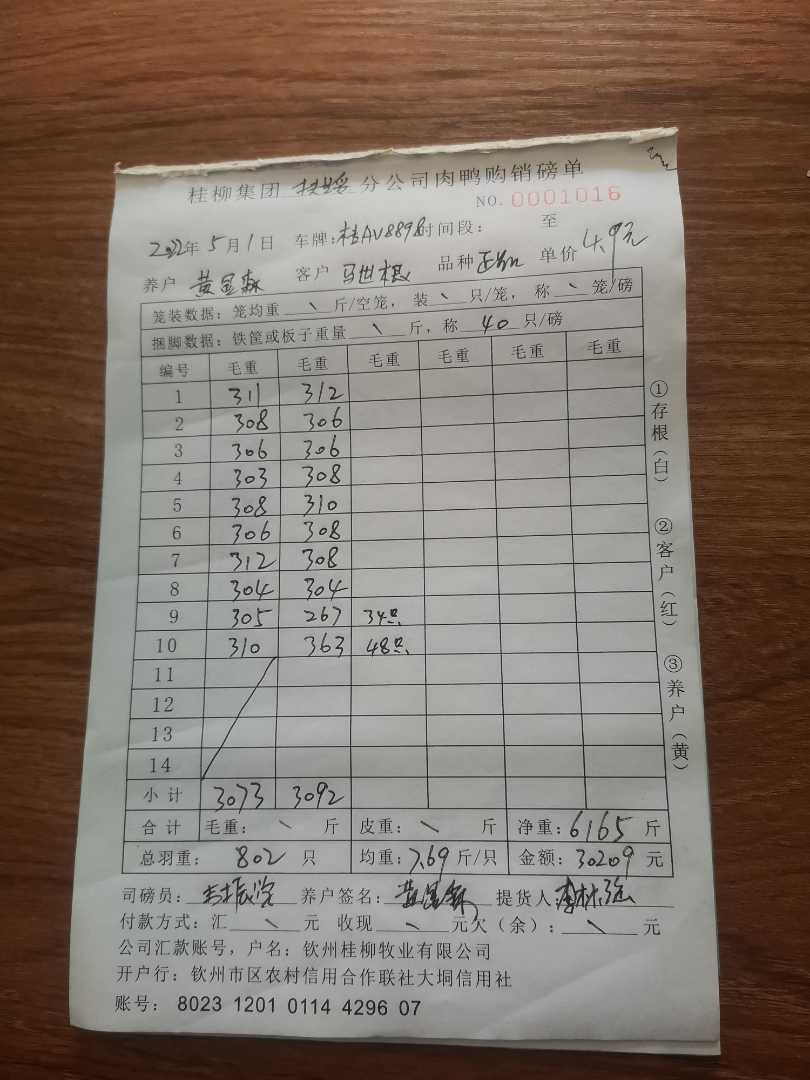 桂柳集团 扶绥 分公司肉鸭购销磅单
NO. 0001016
2022年 5月1日 车牌:桂AV8898 时间段: 至
养户 黄显森 客户 马世根 品种 单价 4.9元
笼装数据: 笼均重 \ 斤/空笼, 装 \ 只/笼, 称 \ 笼/磅
捆脚数据: 铁筐或板子重量 \ 斤, 称 40 只/磅
编号 毛重 毛重 毛重 毛重 毛重 毛重
1 311 312
2 308 306
3 306 306
4 303 308
5 308 310
6 306 308
7 312 308
8 304 304
9 305 267 34只
10 310 363 48只
11
12
13
14
小计 3073 3092
合计 毛重: \ 斤 皮重: \ 斤 净重: 6165 斤
总羽重: 802 只 均重: 7.69 斤/只 金额: 30209 元
司磅员: 养户签名: 黄显森 提货人:
付款方式: 汇 \ 元 收现 \ 元欠(余): \ 元
公司汇款账号, 户名: 钦州桂柳牧业有限公司
开户行: 钦州市区农村信用合作联社大垌信用社
账号: 8023 1201 0114 4296 07
①存根(白)
②客户(红)
③养户(黄)